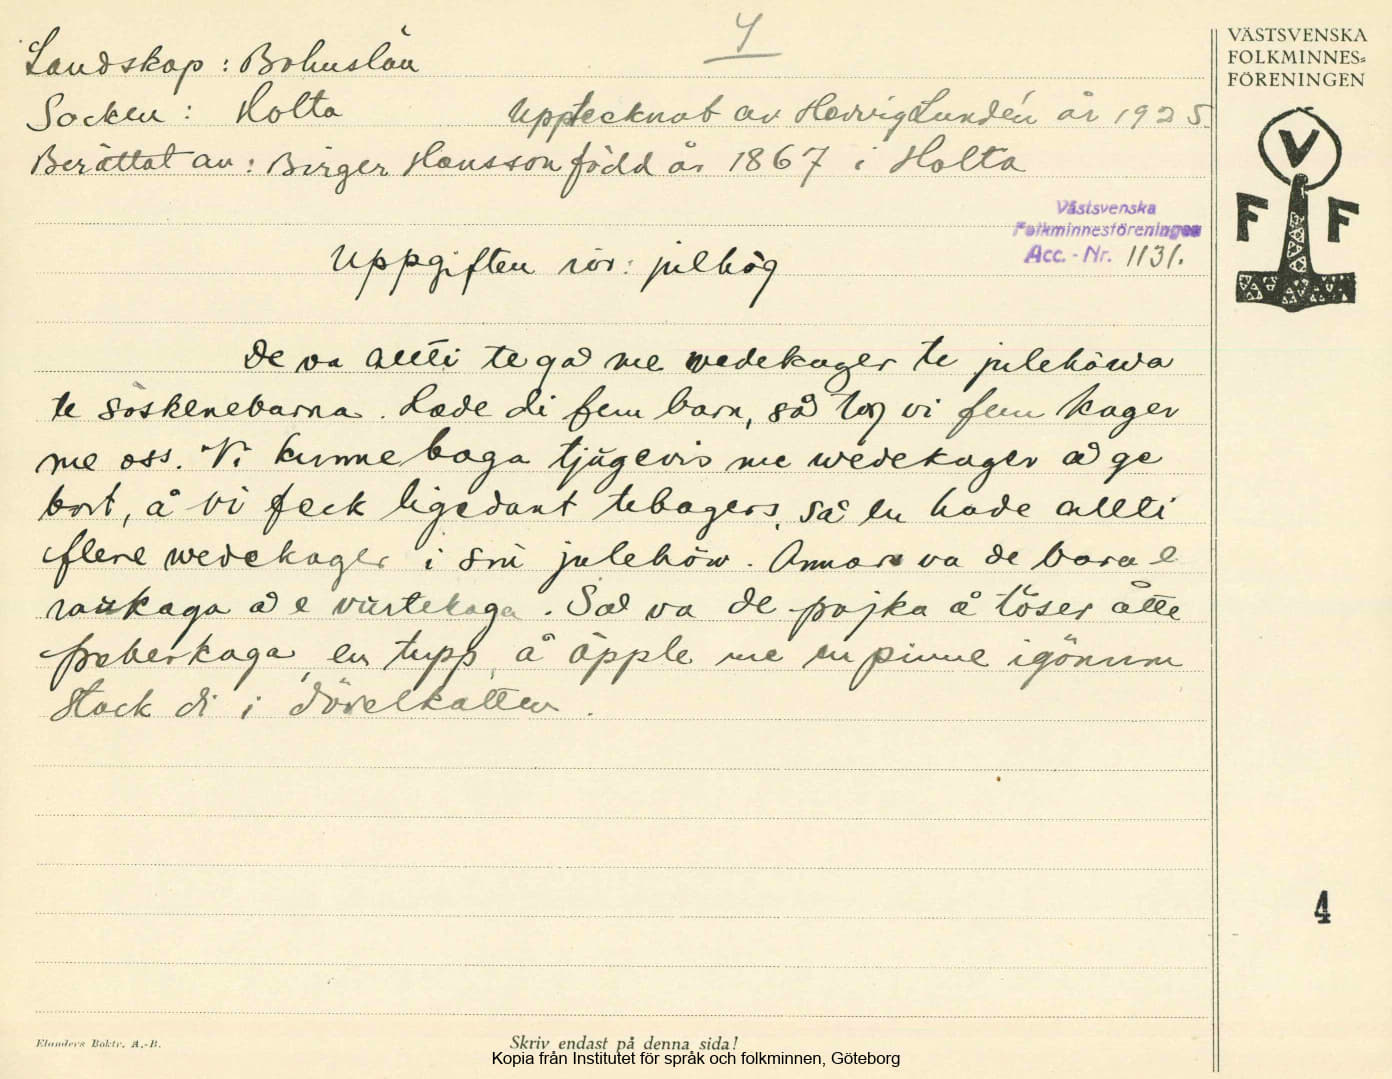 4
VÄSTSVENSKA
FOLKMINNES=
FÖRENINGEN
Landskap : Bohuslän
Socken : Holta Upptecknat av Hervig Lundén år 1925.
Berättat av : Birger Hansson född år 1867 i Holta
V
F F
Västsvenska
Folkminnesföreningen
Acc. - Nr. 1131.
Uppgiften rör: julhög
De va allti te ga me wedekager te julehöwa
te söskenebarna. Hade di fem barn, så tog vi fem kager
me oss. Vi kunne baga tjugevis me wedekager å ge
bort, å vi feck ligedant tebagers, så en hade allti
flere wedekager i sin julehöw. Annars va de bara e
raukaga å e vörtekaga. Så va de pojka å töser åtte
peberkaga, en tupp, å äpple me en pinne igönum
stack di i dövelkatten.
4
Elanders Boktr. A.-B.
Skriv endast på denna sida!
Kopia från Institutet för språk och folkminnen, Göteborg